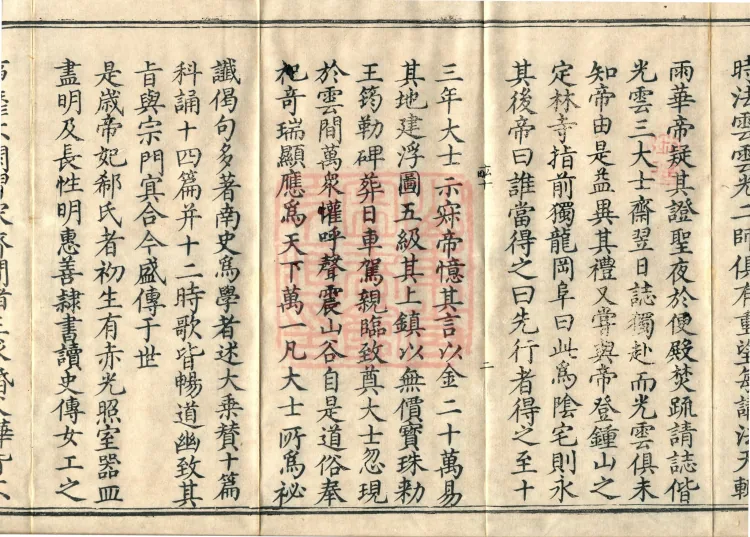 時法雲雲光二師俱有重望每講法天輒
雨華帝疑其證聖夜於便殿焚疏請誌偕
光雲三大士齋翌日誌獨赴而光雲俱未
知帝由是益異其禮又嘗與帝登鍾山之
定林寺指前獨龍岡阜曰此爲陰宅則永
其後帝曰誰當得之曰先行者得之至十
二
三年大士示寂帝憶其言以金二十萬易
其地建浮圖五級其上鎮以無價寶珠勑
王筠勒碑葬日車駕親臨致奠大士忽現
於雲間萬衆懽呼聲震山谷自是道俗奉
祀奇瑞顯應爲天下萬一凡大士所爲祕
讖偈句多著南史爲學者述大乘贊十篇
科誦十四篇并十二時歌皆暢道幽致其
旨與宗門冥合今盛傳于世
是歲帝妃郗氏者初生有赤光照室器皿
盡明及長性明惠善隸書讀史傳女工之